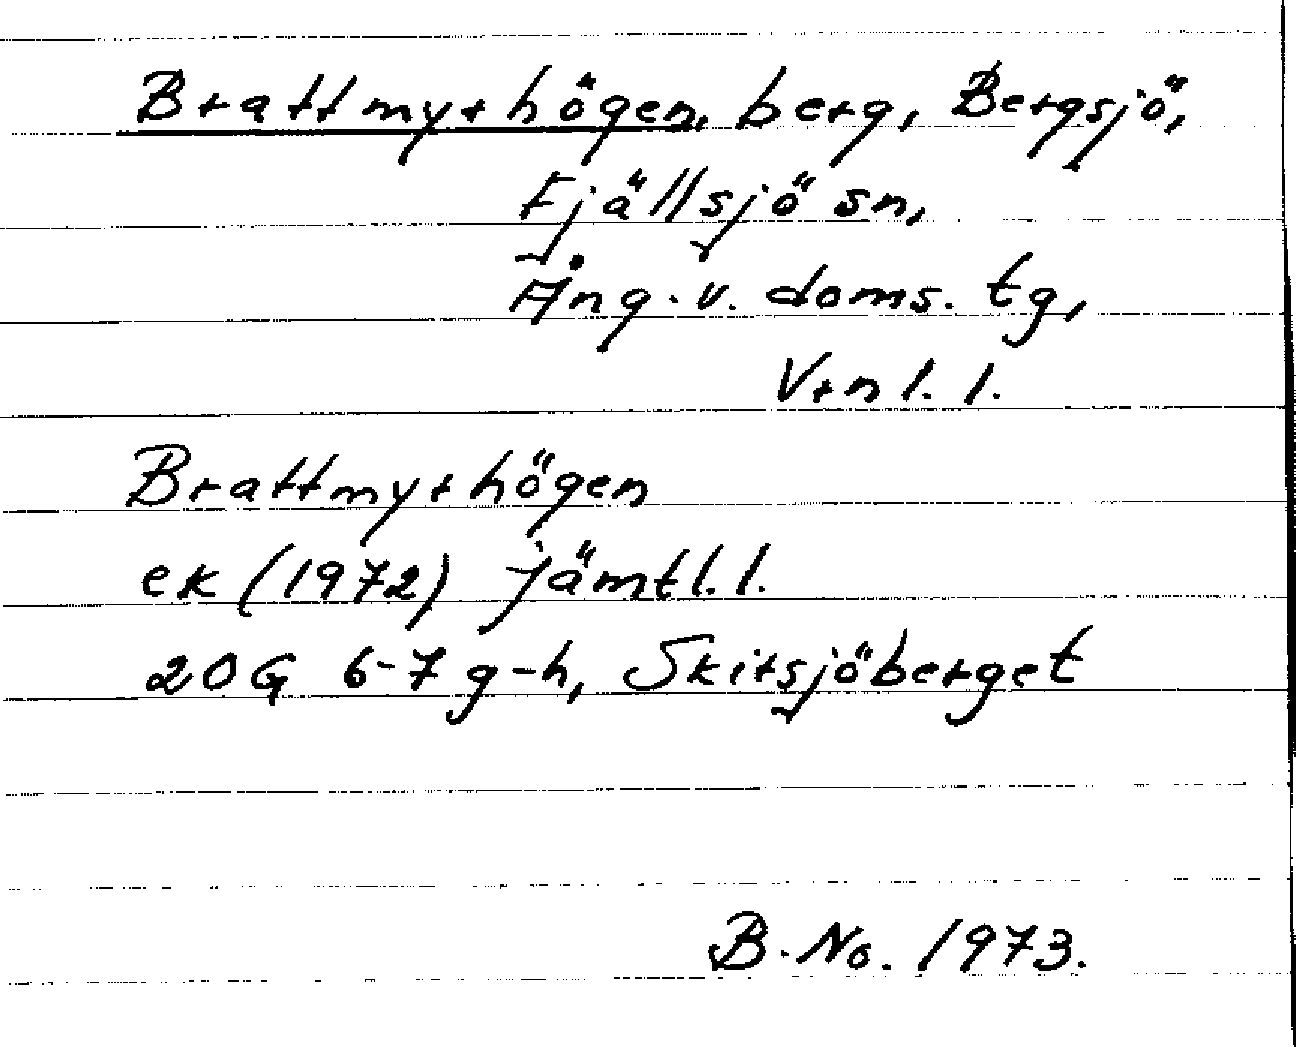 Brattmyrhögen, berg, Bergsjö,
Fjällsjö sn,
Ång. v. doms. tg,
Vrnl. l.
Brattmyrhögen
ek (1972) Jämtl. l.
20G 6-7 g-h, Skirsjöberget
B. No. 1973.